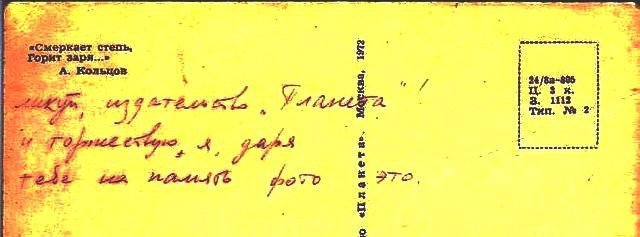 «Смеркает степь,
Горит заря...»
А. Кольцов
ликуй, издательство „Планета"!
и торжествую я, даря
тебе на память фото это.
ю «Планета». Москва, 1972
24/8а-805
Ц. 3 к.
З. 1112
Тип. № 2